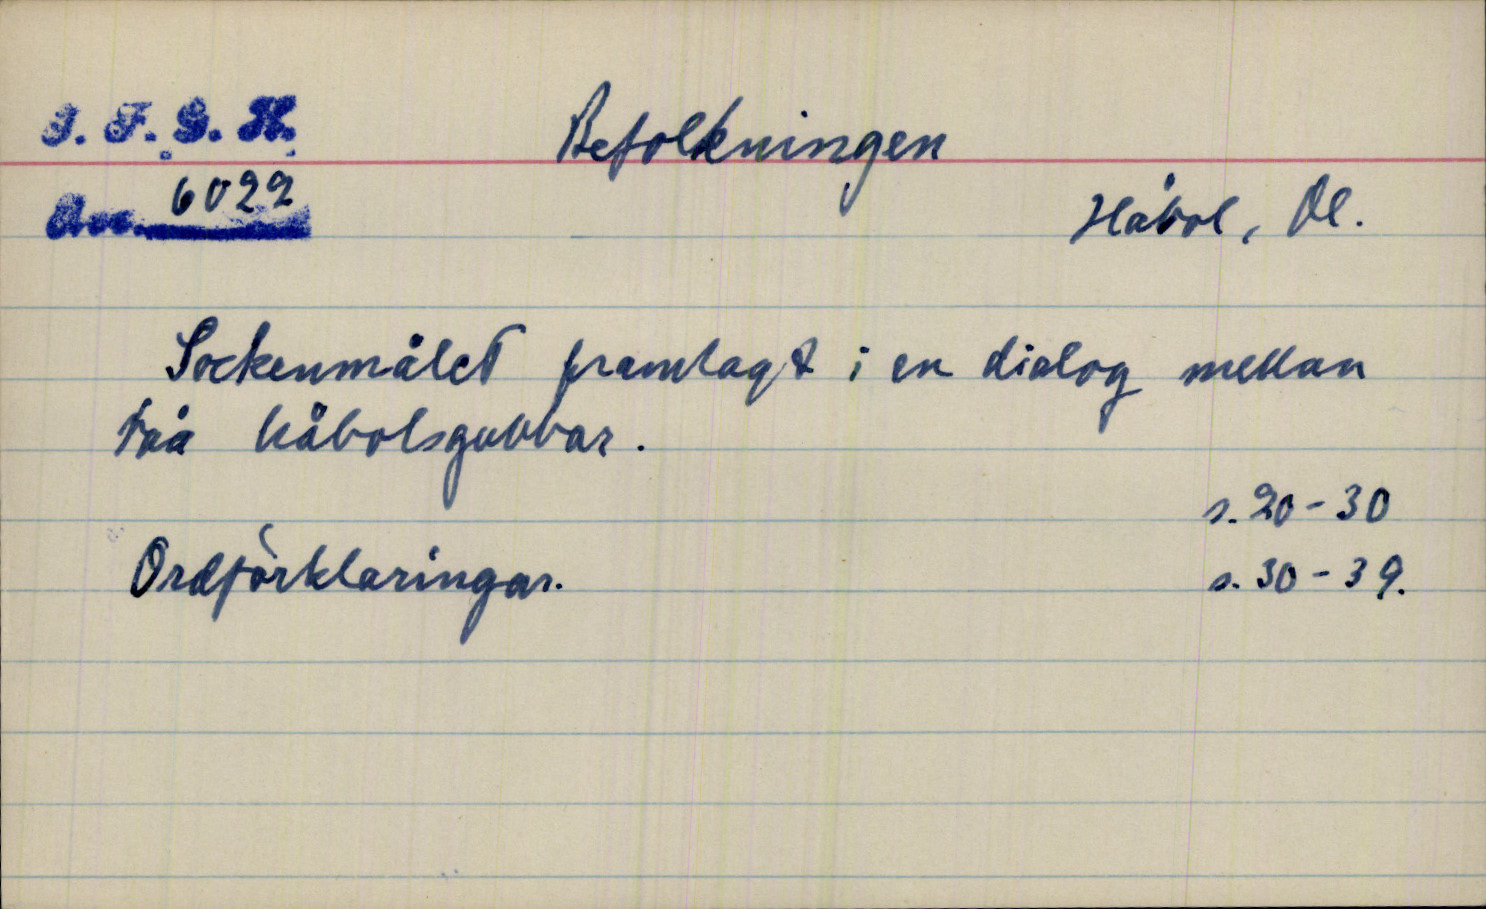 I. F. G. H.
Befolkningen
Acc. 6022
Håbol, Dl.
Sockenmålet framlagt i en dialog mellan
två håbolsgubbar.
s. 20-30
Ordförklaringar. s. 30-39.